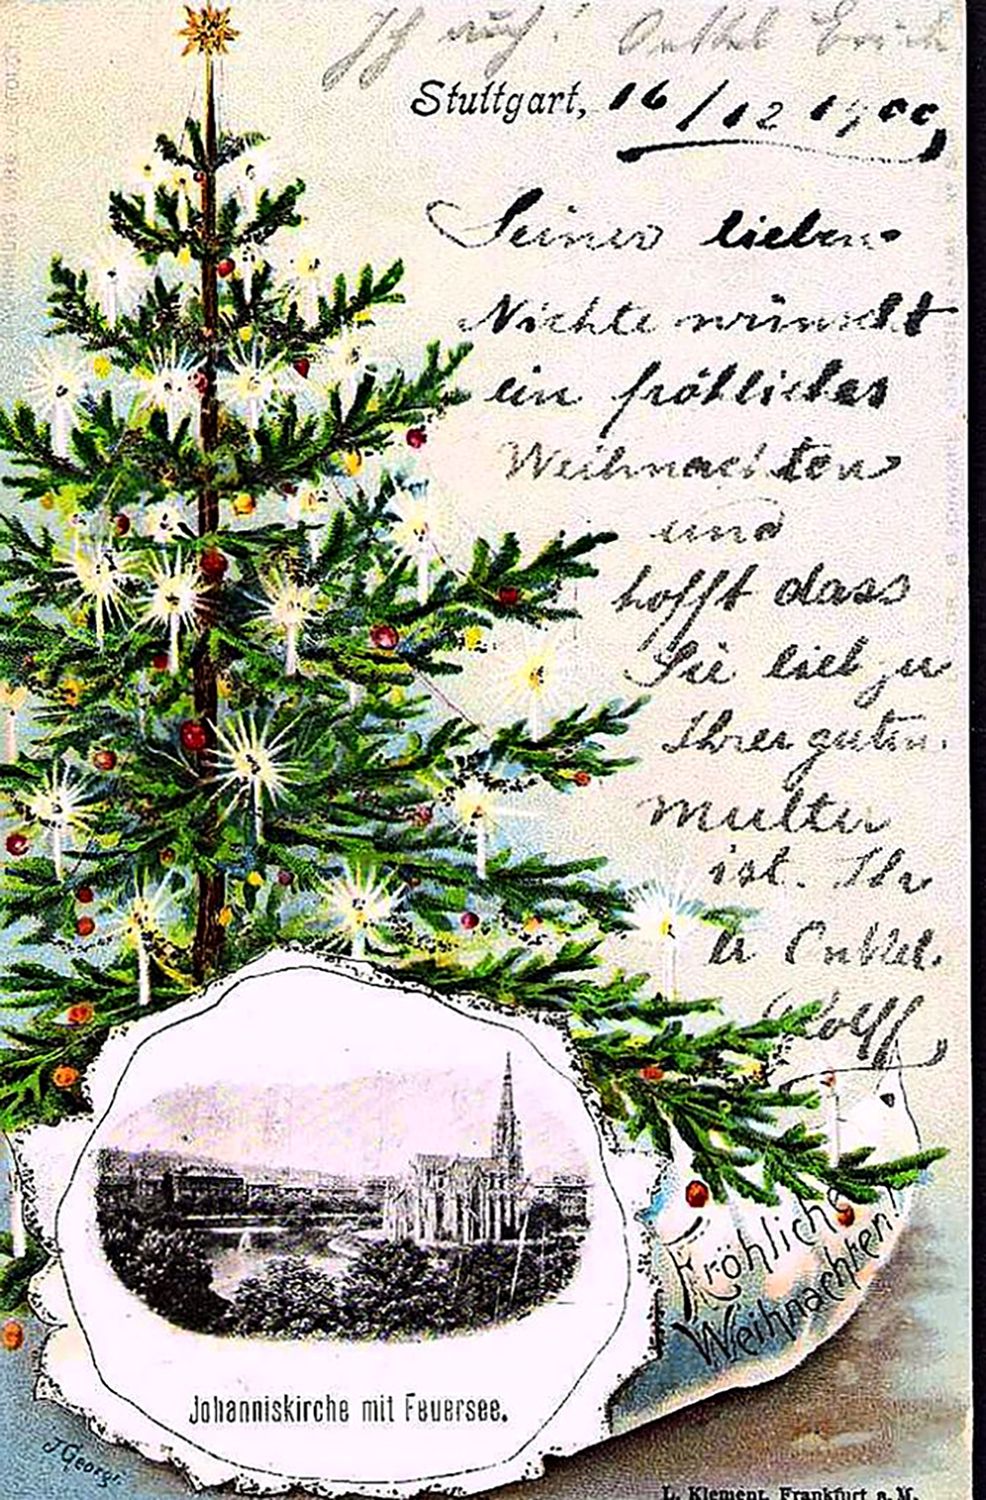 Ich auch! Onkel Erich
Stuttgart, 16/12 1900,
Seiner lieben
Nichte wünscht
ein fröhliches
Weihnachten
und
hofft dass
Sie lieb zu
Ihrer guten
Mutter
ist. Ihr
Onkel
Fröhliche
Weihnachten!
Johanniskirche mit Feuersee.
J. Georgi
L. Klement, Frankfurt a. M.